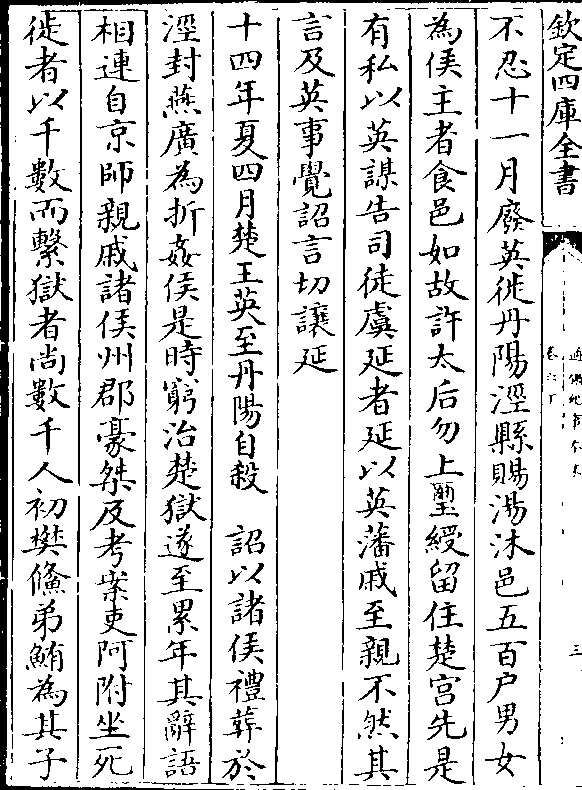 欽定四庫全書
不忍十一月廢英徙丹陽涇縣賜湯沐邑五百戶男女
為侯主者食邑如故許太后勿上璽綬留住楚宮先是
有私以英謀告司徒虞延者延以英藩戚至親不然其
言及英事覺詔言切讓延
十四年夏四月楚王英至丹陽自殺　詔以諸侯禮葬於
涇封燕廣為折姦侯是時窮治楚獄遂至累年其辭語
相連自京師親戚諸侯州郡豪桀及考案吏阿附坐死
徙者以千數而繫獄者尚數千人初樊鯈弟鮪為其子